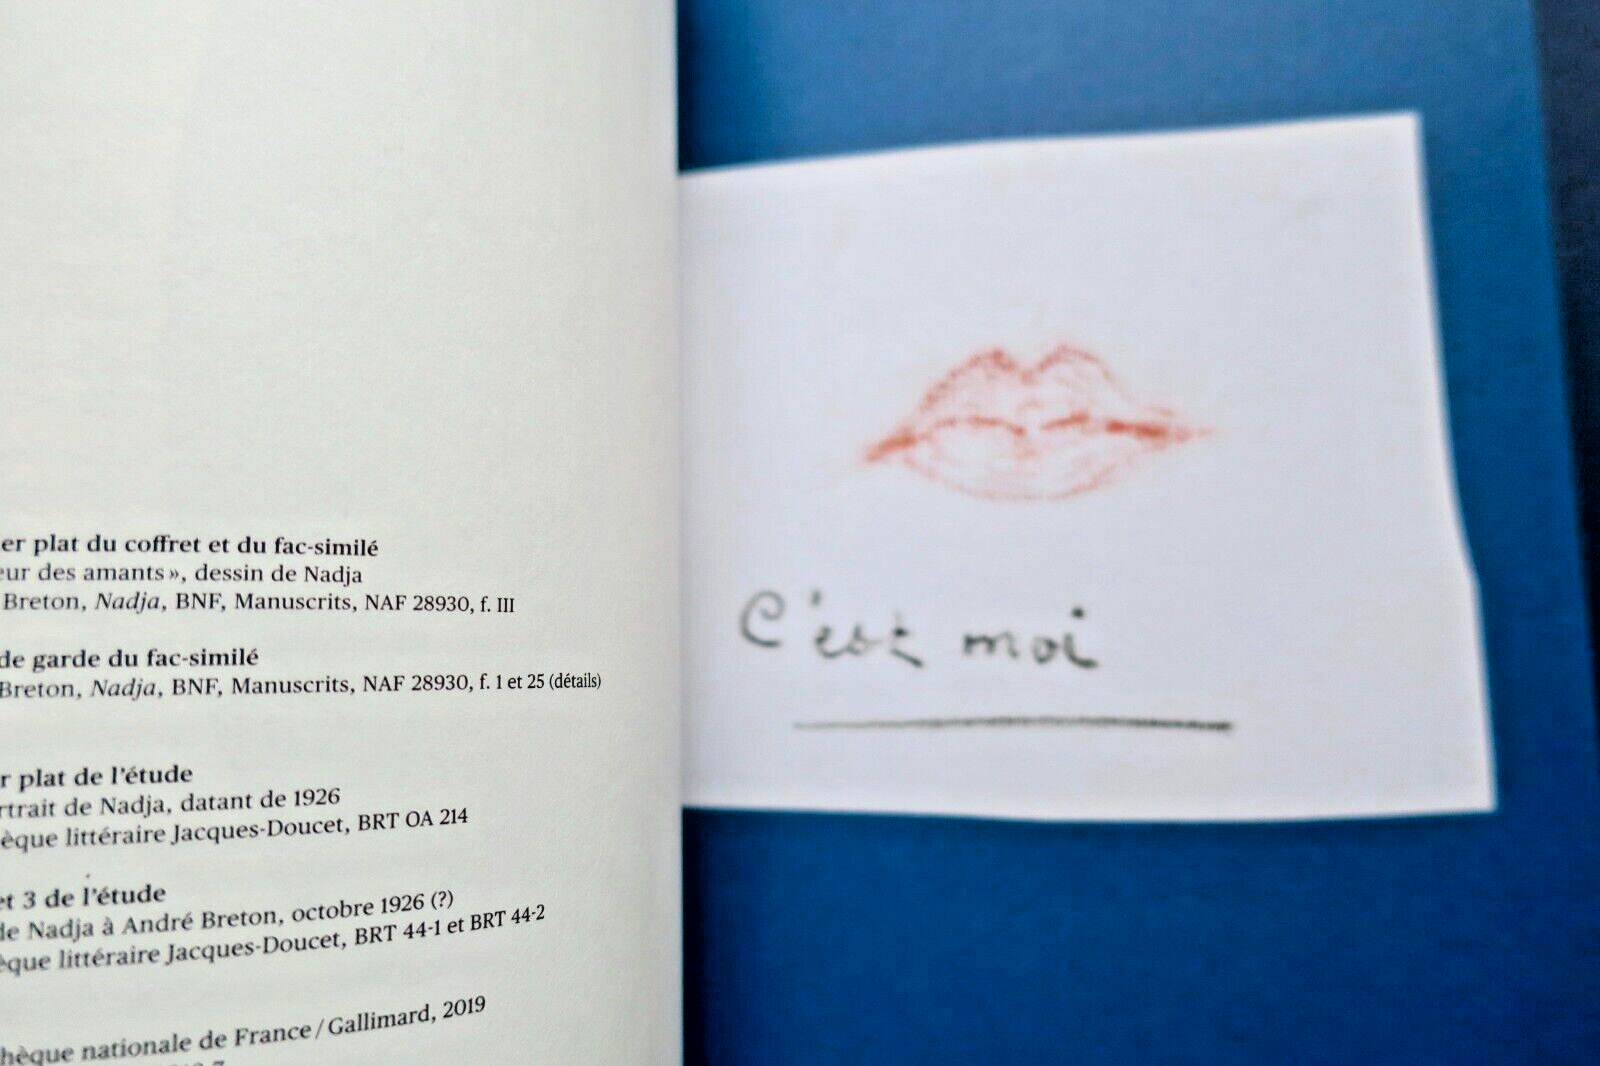 er plat du coffret et du fac-similé
eur des amants », dessin de Nadja
Breton, Nadja, BNF, Manuscrits, NAF 28930, f. III
de garde du fac-similé
Breton, Nadja, BNF, Manuscrits, NAF 28930, f. 1 et 25 (détails)
r plat de l'étude
rtrait de Nadja, datant de 1926
èque littéraire Jacques-Doucet, BRT OA 214
et 3 de l'étude
de Nadja à André Breton, octobre 1926 (?)
èque littéraire Jacques-Doucet, BRT 44-1 et BRT 44-2
hèque nationale de France / Gallimard, 2019
C'est moi